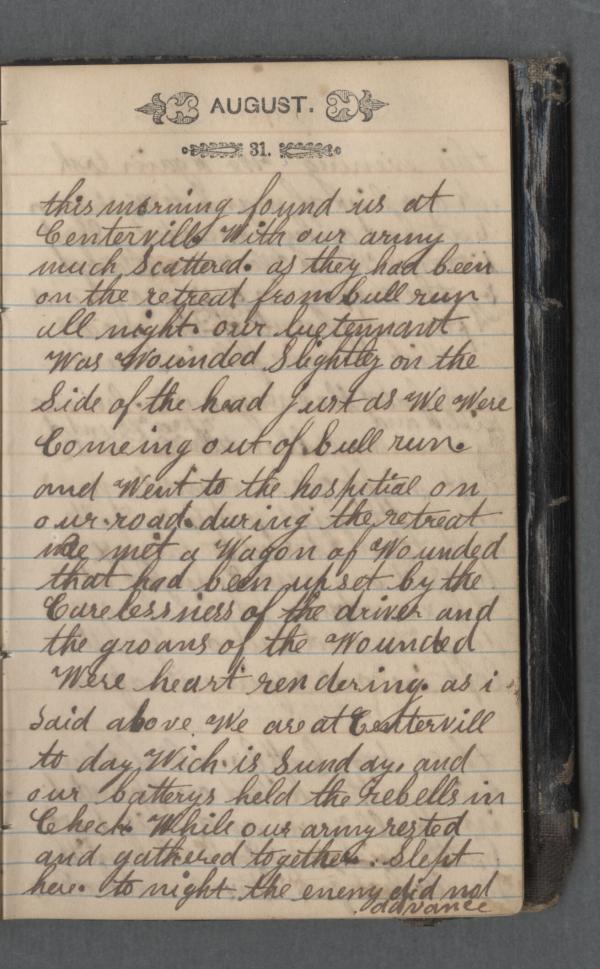 AUGUST.
31.
this morning found us at
Centervill. With our army
much Scattered. as they had been
on the retreat from bull run
all night. our luetennant
Was Wounded Slightly on the
Side of the head just as We Were
Comeing out of bull run.
and Went to the hospitial on
our road. during the retreat
we met a Wagon of Wounded
that had been upset by the
Carelessness of the driver and
the groans of the Wounded
Were heart rendering. as i
said above We are at Centervill
to day Wich is Sunday. and
our batterys held the rebells in
Check While our army rested
and gathered together. Slept
here. to night the enemy did not
advance